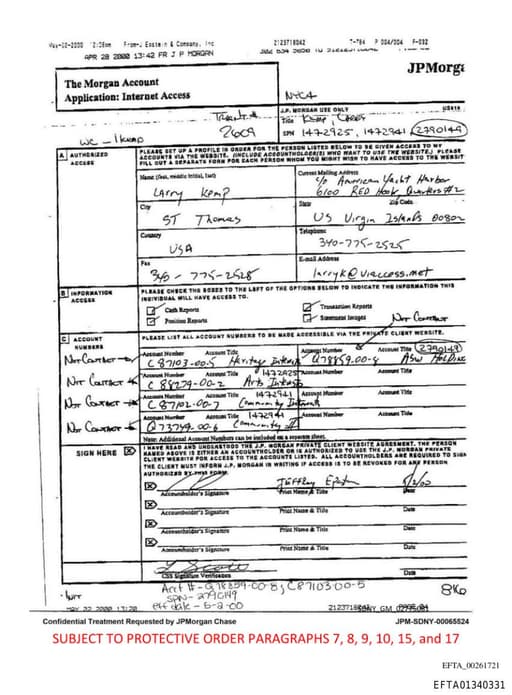 May-02-2000 12:06pm From-J Epstein & Company, Inc 2123718042 T-764 P 004/004 F-032
APR 28 2000 13:42 FR J P MORGAN
JPMorga
The Morgan Account
Application: Internet Access
NYC4
J.P. MORGAN USE ONLY
2609
Title Kemp,
SPN 1472925, 1472941 2790149
WC - 1 Kemp
A AUTHORIZED ACCESS
PLEASE SET UP A PROFILE IN ORDER FOR THE PERSON LISTED BELOW TO BE GIVEN ACCESS TO MY
ACCOUNTS VIA THE WEBSITE. (INCLUDE ACCOUNTHOLDER(S) WHO WANT TO USE THE WEBSITE.) PLEASE
FILL OUT A SEPARATE FORM FOR EACH PERSON WHOM YOU MIGHT WISH TO HAVE ACCESS TO THE WEBSIT
Name (first, middle initial, last)
Larry Kemp
Current Mailing Address
c/o American Yacht Harbor
6100 Red Hook, Quarters #2
City
ST Thomas
State
US Virgin Islands
Zip Code
00802
Country
USA
Telephone
340-775-2525
Fax
340-775-2528
E-mail Address
larryk@viaccess.net
B INFORMATION ACCESS
PLEASE CHECK THE BOXES TO THE LEFT OF THE OPTIONS BELOW TO INDICATE THE INFORMATION THIS
INDIVIDUAL WILL HAVE ACCESS TO.
Cash Reports
Transaction Reports
Position Reports
Statement Images
Not Contact
C ACCOUNT NUMBERS
PLEASE LIST ALL ACCOUNT NUMBERS TO BE MADE ACCESSIBLE VIA THE PRIVATE CLIENT WEBSITE.
Account Number Account Title Account Number Account Title 2790149
Not Contact C 87103-00-5 Heritage Interests Q78859-00-8 ASW Holding
Account Number 1472925 Account Number Account Title
Not Contact C 88279-00-2 Arts Interests
Account Number 1472941 Account Number Account Title
Not Contact C 87102-00-7 Community Interests
Account Number 1472941 Account Number Account Title
Not Contact Q 73749-00-6 Community II
Note: Additional Account Numbers can be included on a separate sheet.
SIGN HERE
I HAVE READ AND UNDERSTOOD THE J.P. MORGAN PRIVATE CLIENT WEBSITE AGREEMENT. THE PERSON
NAMED ABOVE IS EITHER AN ACCOUNTHOLDER OR IS AUTHORIZED TO USE THE J.P. MORGAN PRIVATE
CLIENT WEBSITE FOR ACCESS TO THE ACCOUNTS LISTED. ALL ACCOUNTHOLDERS ARE REQUIRED TO SIGN
THE CLIENT MUST INFORM J.P. MORGAN IN WRITING IF ACCESS TO BE REVOKED FOR ANY PERSON
AUTHORIZED BY THIS FORM.
Jeffrey Epstein 5/2/00
Accountholder's Signature Print Name & Title Date
Accountholder's Signature Print Name & Title Date
Accountholder's Signature Print Name & Title Date
Accountholder's Signature Print Name & Title Date
CSS Signature Verification
Acct #- Q78859-00-8; C87103-00-5
SPN- 2790149
eff date - 5-2-00
MAY 02 2000 13:20
Confidential Treatment Requested by JPMorgan Chase JPM-SDNY-00065524
SUBJECT TO PROTECTIVE ORDER PARAGRAPHS 7, 8, 9, 10, 15, and 17
EFTA_00261721
EFTA01340331